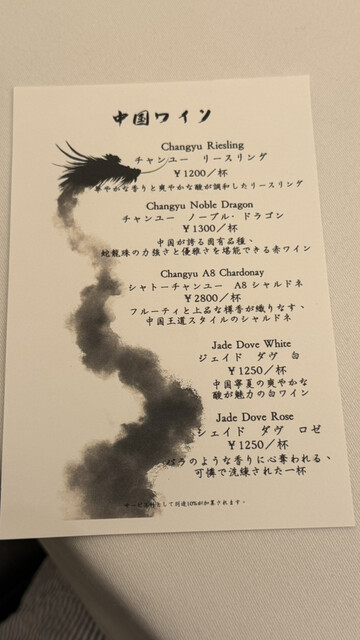 中国ワイン
Changyu Riesling
チャンユー リースリング
￥1200／杯
華やかな香りと爽やかな酸が調和したリースリング
Changyu Noble Dragon
チャンユー ノーブル・ドラゴン
￥1300／杯
中国が誇る固有品種、
蛇龍珠の力強さと優雅さを堪能できる赤ワイン
Changyu A8 Chardonay
シャトーチャンユー A8 シャルドネ
￥2800／杯
フルーティと上品な樽香が織りなす、
中国王道スタイルのシャルドネ
Jade Dove White
ジェイド ダヴ 白
￥1250／杯
中国寧夏の爽やかな
酸が魅力の白ワイン
Jade Dove Rose
ジェイド ダヴ ロゼ
￥1250／杯
バラのような香りに心奪われる、
可憐で洗練された一杯
サービス料として別途10%が加算されます。